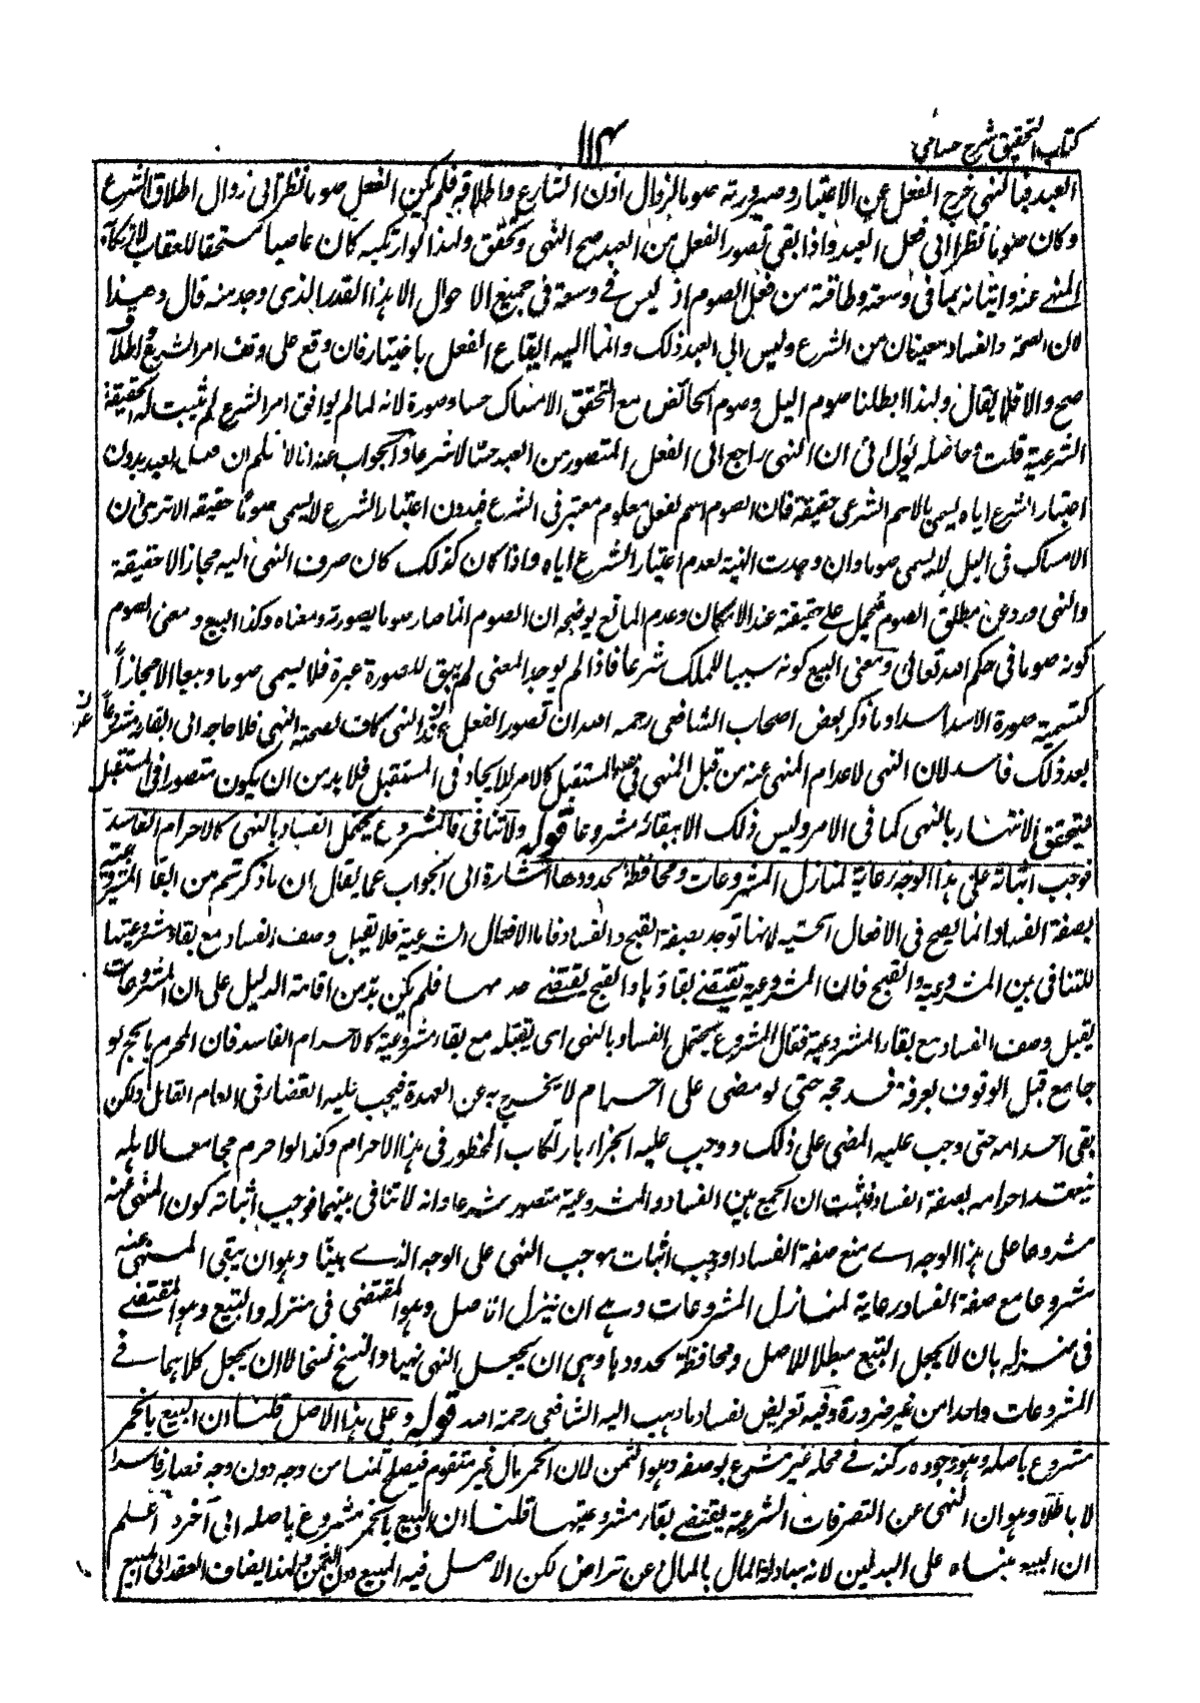 كتاب التحقيق شرح حسامي
١١٤
العبد فبالنهي خرج الفعل عن الاعتبار وصيرورته صوما لزوال اذن الشارع واطلاقه فلم يكن الفعل صوما نظرا الى زوال اطلاق الشرع
وكان صوما نظرا الى فعل العبد واذا بقى تصور الفعل من العبد صح النهى وتحقق ولهذا لو ارتكبه كان عاصيا مستحقا للعقاب لارتكابه
المنهى عنه واتيانه بما فى وسعه وطاقته من فعل الصوم اذ ليس فى وسعه فى جميع الاحوال الا هذا القدر الذى وجد منه قال وهذا
لان الصحة والفساد معنيان من الشرع وليس الى العبد ذلك وانما اليه ايقاع الفعل باختياره فان وقع على وفق امر الشرع واطلاقه
صح والا فلا يقال ولهذا ابطلنا صوم الليل وصوم الحائض مع التحقق الامساك حسا وصورة لانه لما لم يوافق امر الشرع لم يثبت له الحقيقة
الشرعية قلت حاصله يؤل الى ان النهى راجع الى الفعل المتصور من العبد حسا لا شرعا والجواب عنه انا لا نسلم ان فعل العبد بدون
اعتبار الشرع اياه يسمى بالاسم الشرعى حقيقة فان الصوم اسم لفعل معلوم معتبر فى الشرع فبدون اعتبار الشرع لا يسمى صوما حقيقة الا ترى ان
الامساك فى الليل لا يسمى صوما وان وجدت النية لعدم اعتبار الشرع اياه واذا كان كذلك كان صرف النهى اليه مجازا لا حقيقة
والنهى ورد عن مطلق الصوم فيحمل على حقيقته عند الامكان وعدم المانع يوضحه ان الصوم انما صار صوما بصورته ومعناه وكذا البيع ومعنى الصوم
كونه صوما فى حكم الله تعالى ومعنى البيع كونه سببا للملك شرعا فاذا لم يوجد المعنى لم يبق للصورة عبرة فلا يسمى صوما وبيعا الا مجازاً
كتسمية صورة الاسد اسدا وما ذكر بعض اصحاب الشافعى رحمه الله ان تصور الفعل عند النهى كاف لصحة النهى فلا حاجه الى البقاء مشروعاً
بعد ذلك فاسد لان النهى لاعدام المنهى عنه من قبل المنهى فى المستقبل كالامر للايجاد فى المستقبل فلا بد من ان يكون متصورا فى المستقبل
ليتحقق الانتهاء بالنهى كما فى الامر وليس ذلك الا ببقائه مشروعا قوله ولا تنافى فالمشروع يحتمل الفساد بالنهى كالاحرام الفاسد
فوجب اثباته على هذا الوجه رعاية لمنازل المشروعات ومحافظة لحدودها اشارة الى الجواب عما يقال ان ما ذكرتم من البقاء المشروعية
بصفة الفساد انما يصح فى الافعال الحسيه لانها توجد بصفة القبح والفساد فاما الافعال الشرعية فلا تقبل وصف الفساد مع بقاء مشروعيتها
للتنافى بين المشروعية والقبح فان المشروعية تقتضى بقاءها والقبح يقتضى عدمها فلم يكن بد من اقامة الدليل على ان المشروعات
يقبل وصف الفساد مع بقاء المشروعية فقال المشروع يحتمل الفساد بالنهى اى يقبله مع بقاء مشروعية كالاحرام الفاسد فان المحرم بالحج لو
جامع قبل الوقوف بعرفة فسد حجه حتى لو مضى على احرام لا يخرج به عن العهدة فيجب عليه القضاء فى العام القابل ولكن
بقى احرامه حتى وجب عليه المضى على ذلك ووجب عليه الجزاء بارتكاب المحظور فى هذا الاحرام وكذا لو احرم مجامعا لاهله
ينعقد احرامه بصفة الفساد فثبت ان الجمع بين الفساد والمشروعية متصور شرعا وانه لا تنافى بينهما فوجب اثباته كون المنهى عنه
مشروعا على هذا الوجه اى مع صفة الفساد او يجب اثبات موجب النهى على الوجه الذى بينا وهو ان يبقى المنهى عنه
مشروعا مع صفة الفساد رعاية لمنازل المشروعات وهى ان ينزل الاصل وهو المقتضى فى منزله والتبع وهو المقتضى
فى منزله بان لا يجعل التبع مبطلا للاصل ومحافظة لحدودها وهى ان يجعل النهى نهيا والنسخ نسخا لا ان يجعل كلاهما فى
المشروعات واحدا من غير ضرورة وفيه تعريض لفساد ما ذهب اليه الشافعى رحمه الله قوله وعلى هذا الاصل قلنا ان البيع بالخمر
مشروع باصله وهو وجود ركنه فى محله غير مشروع بوصفه وهو الثمن لان الخمر مال غير متقوم فيصلح ثمنا من وجه دون وجه فصار فاسدا
لا باطلا وهو ان النهى عن التصرفات الشرعية يقتضى بقاء مشروعيتها قلنا ان البيع بالخمر مشروع باصله الى آخره اعلم
ان البيع مبناه على البدلين لانه مبادلة المال بالمال عن تراض لكن الاصل فيه المبيع دون الثمن ولهذا يضاف العقد الى المبيع